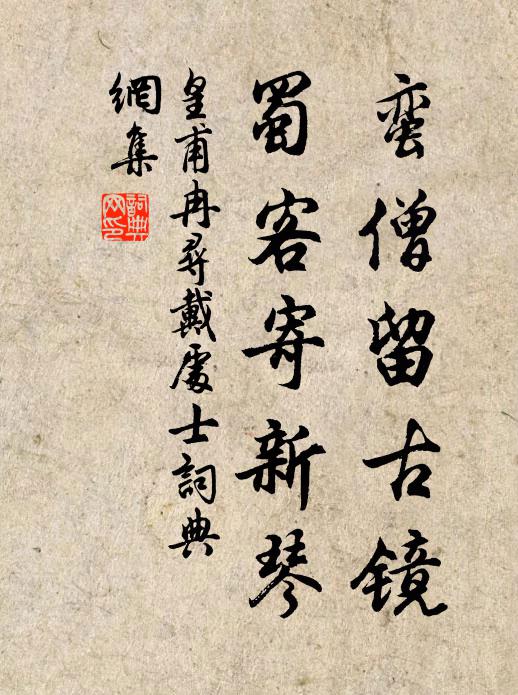 蛮僧留古镜
蜀客寄新琴
皇甫冉尋戴處士詞典
網集
詞典
网印